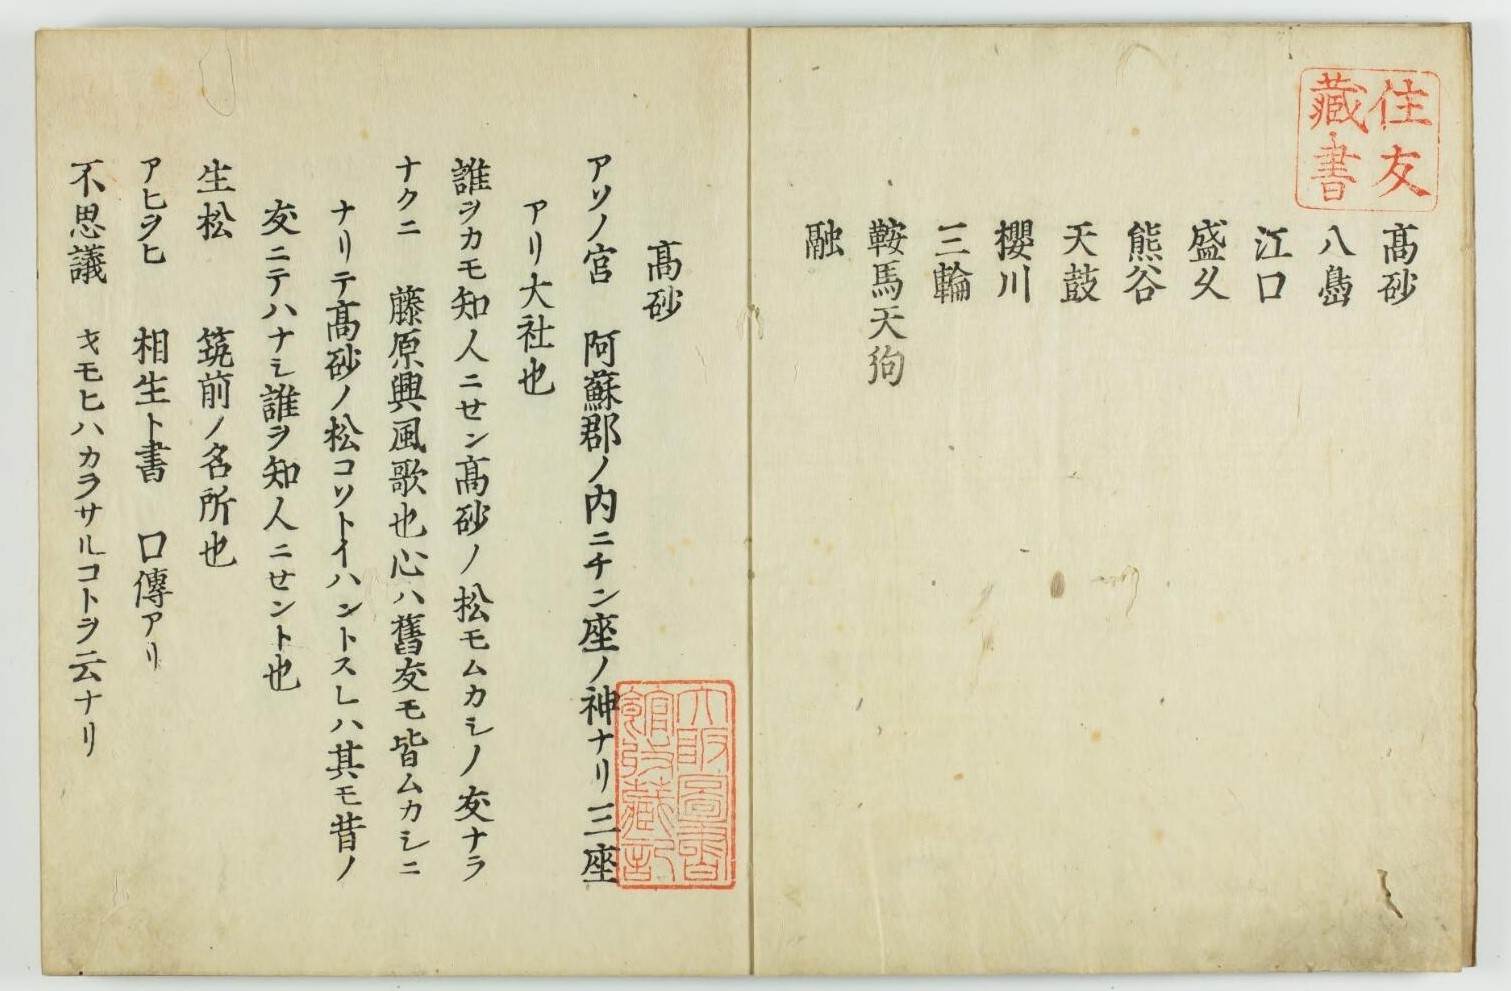 住友
藏書
髙砂
八嶌
江口
盛久
熊谷
天鼓
櫻川
三輪
鞍馬天狗
融
髙砂
アソノ宮　阿蘇郡ノ内ニチン座ノ神ナリ三座
アリ大社也
誰ヲカモ知人ニセン髙砂ノ松モムカシノ友ナラ
ナクニ　藤原興風歌也心ハ舊友モ皆ムカシニ
ナリテ髙砂ノ松コソトイハントスレハ其モ昔ノ
友ニテハナシ誰ヲ知人ニセント也
生松　筑前ノ名所也
アヒヲヒ　相生ト書　口傳アリ
不思議　キモヒハカラサルコトヲ云ナリ
大阪圖書
館收藏記